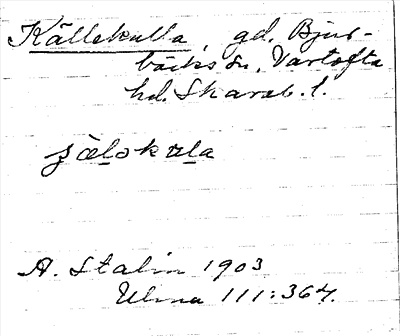 Källekulla, gd. Bjur-
bäcks sn, Vartofta
hd. Skarab. l.
A. Stalin 1903
111:364.